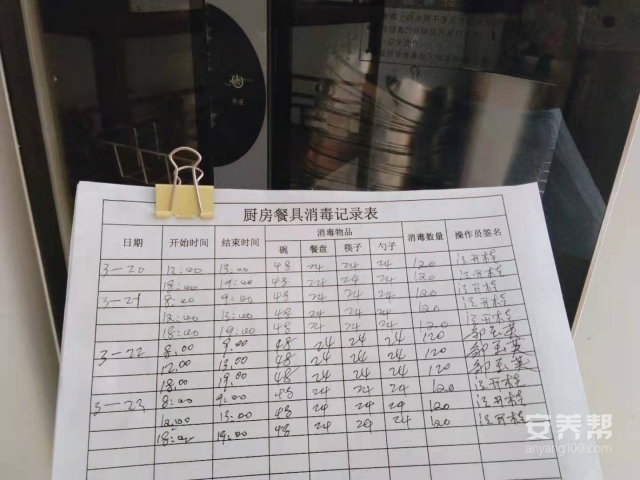 厨房餐具消毒记录表
日期 开始时间 结束时间 消毒物品 消毒数量 操作员签名
碗 餐盘 筷子 勺子
3-20 12:00 13:00 48 24 24 24 120
18:00 19:00 48 24 24 24 120
3-21 8:00 9:00 48 24 24 24 120
12:00 13:00 48 24 24 24 120
18:00 19:00 48 24 24 24 120
3-22 8:00 9:00 48 24 24 24 120
12:00 13:00 48 24 24 24 120
18:00 19:00 48 24 24 24 120
3-23 8:00 9:00 48 24 24 24 120
12:00 13:00 48 24 24 24 120
18:00 19:00 48 24 24 24 120
安养帮
anyang100.com